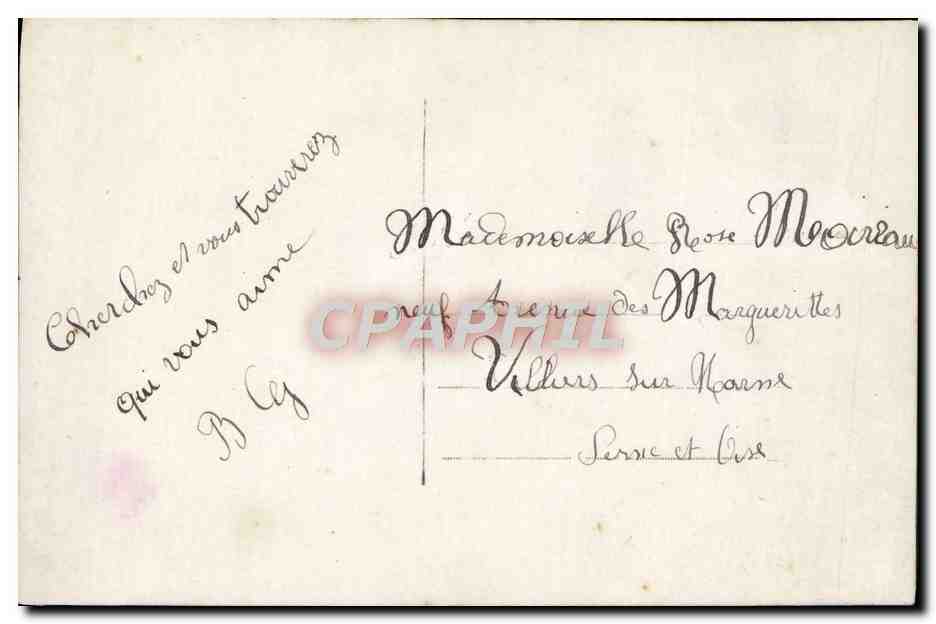 Cherchez et vous trouverez
qui vous aime
B G
Mademoiselle Rose
neuf Avenue des Marguerittes
Villiers sur Marne
Seine et Oise
CPAPHIL